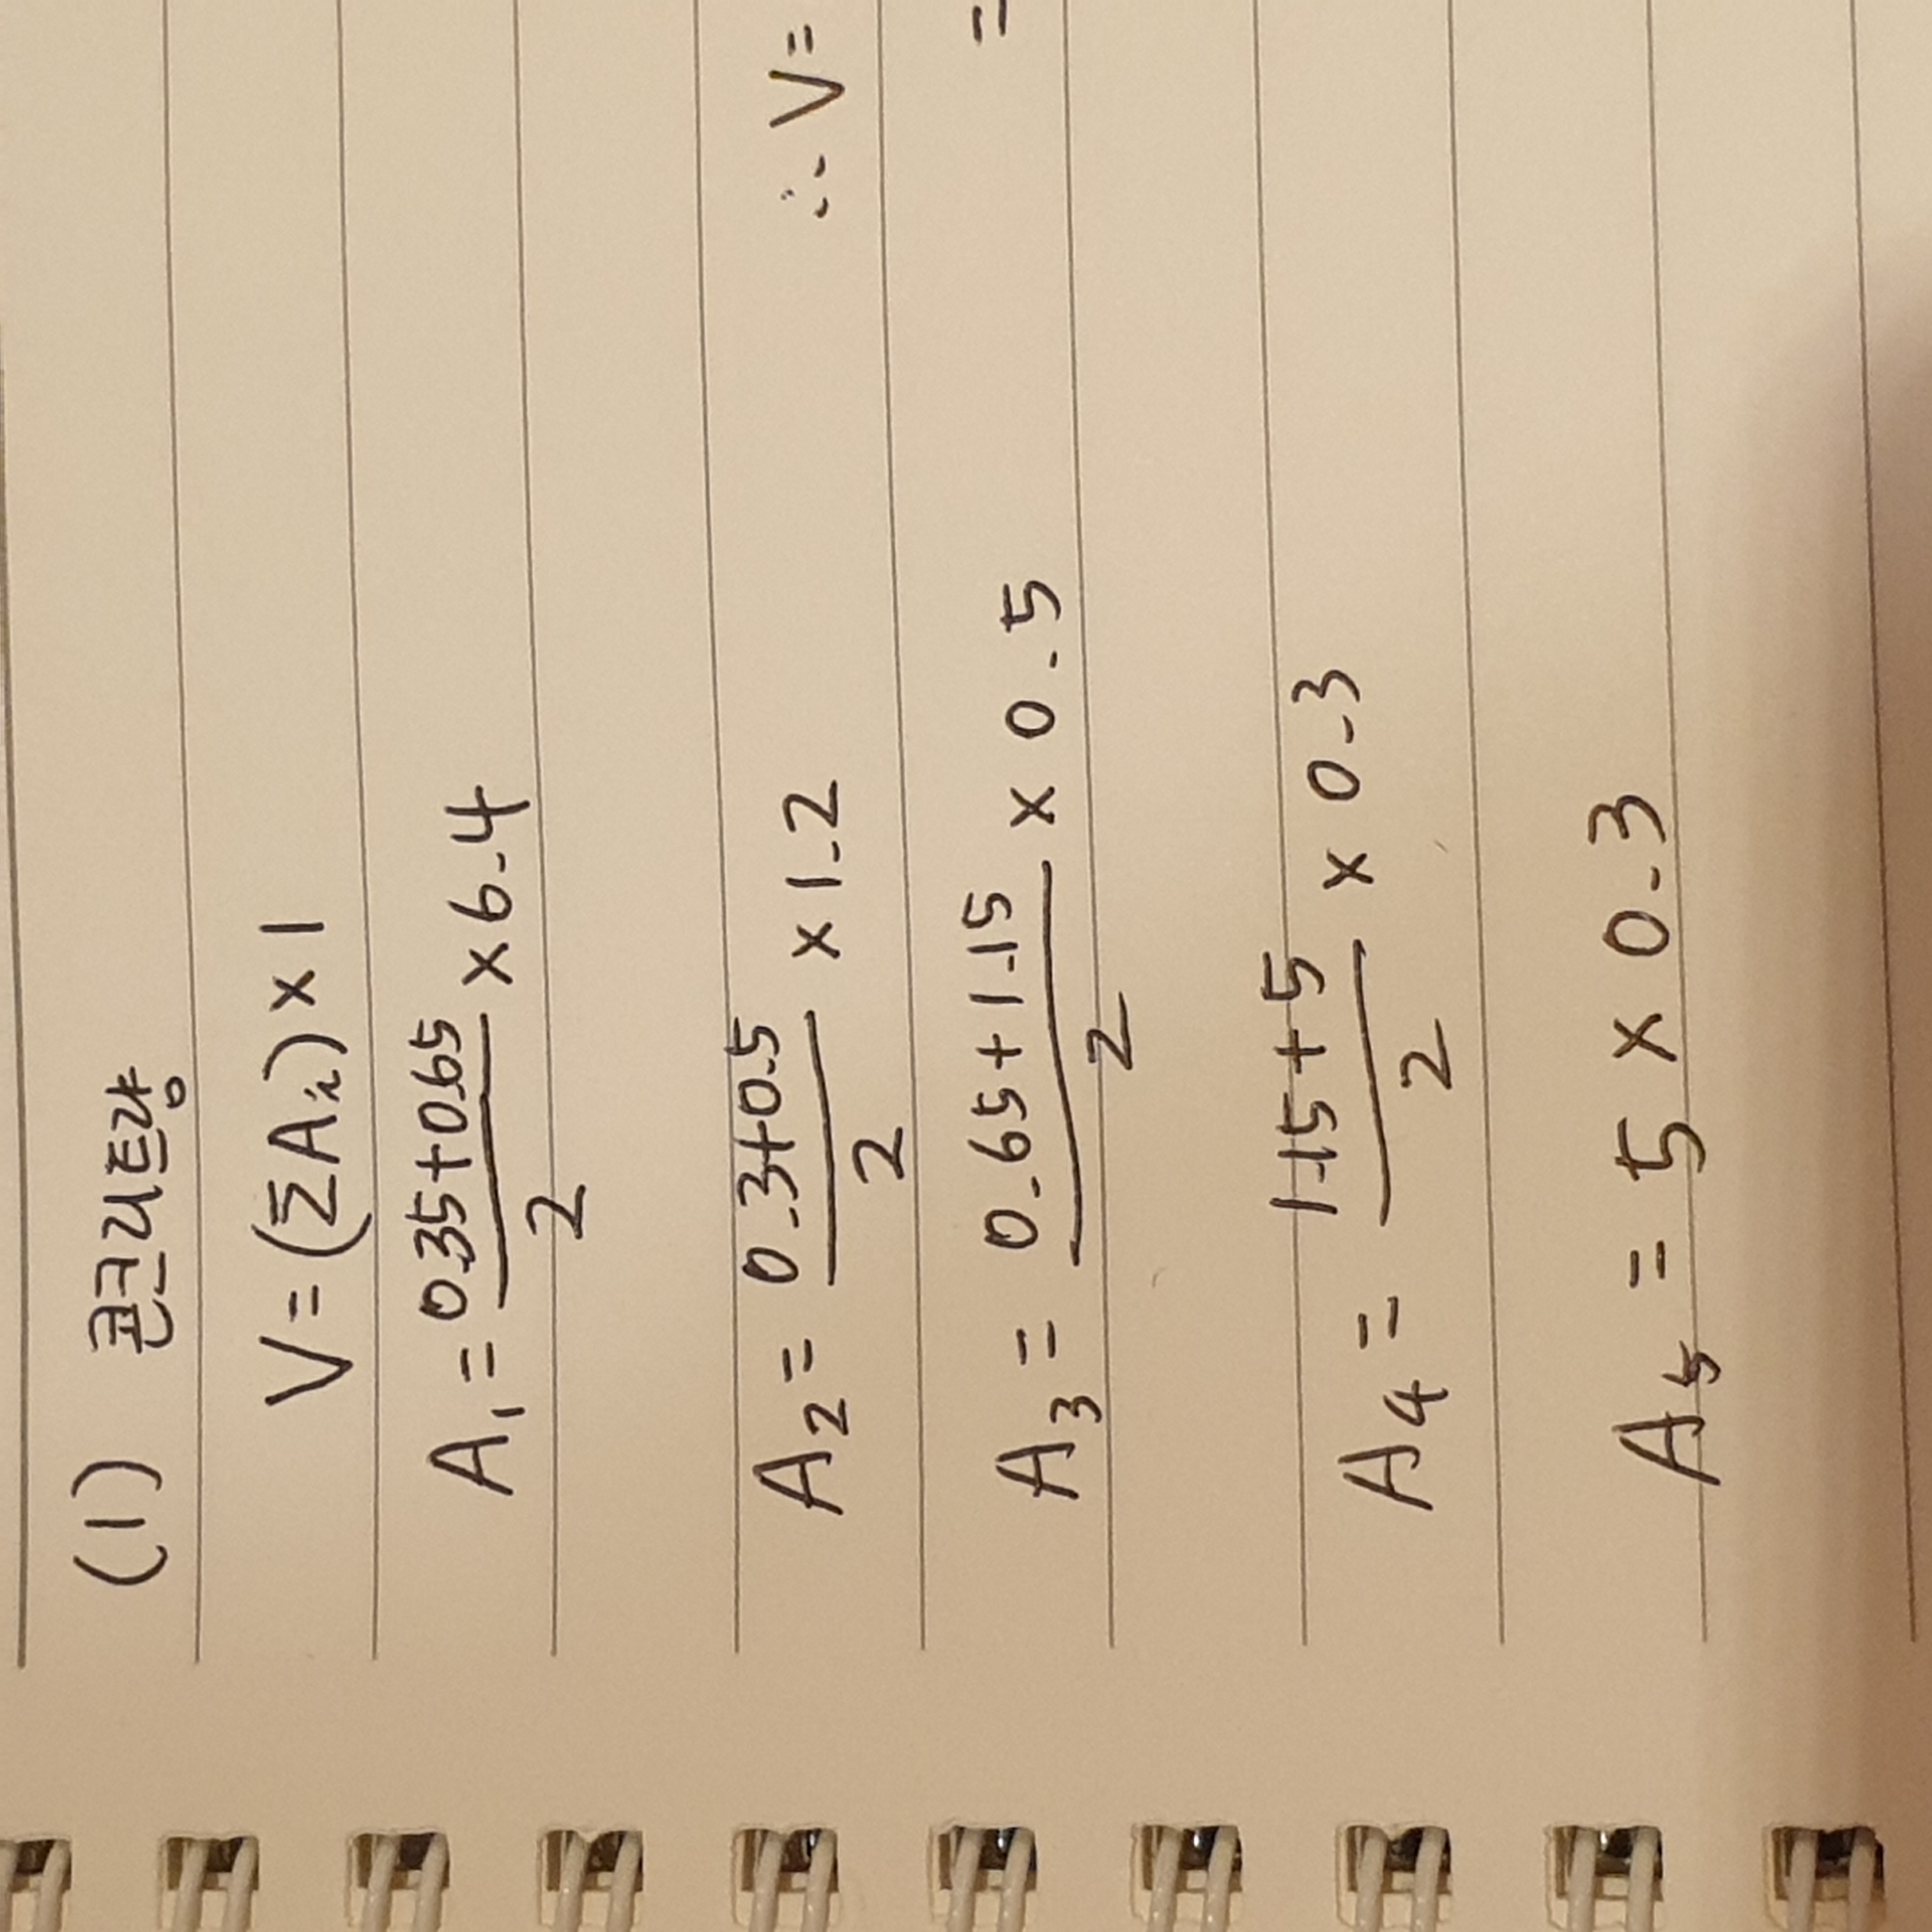 (1) 콘크리트량
V = (ΣAi) × 1
A₁ = (0.35+0.65)/2 × 6.4
A₂ = (0.3+0.5)/2 × 1.2
∴ V =
A₃ = (0.65+1.15)/2 × 0.5
=
A₄ = (1.15+5)/2 × 0.3
A₅ = 5 × 0.3